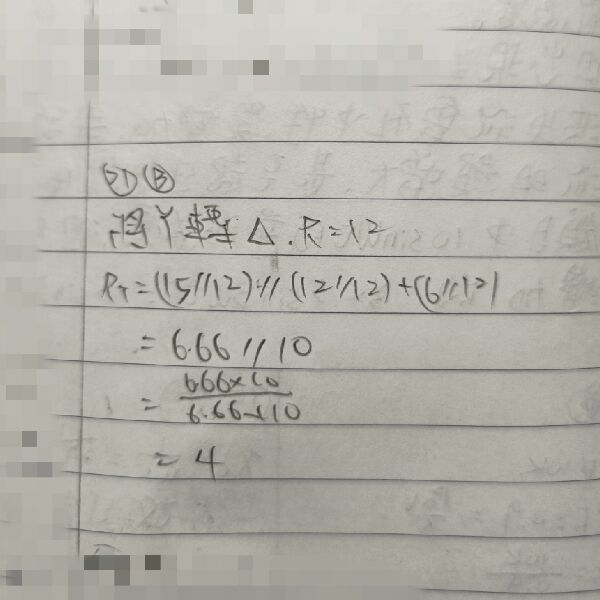 ㉗Ⓑ
將Y轉△.R=12
RT=(15//12)//(12//12)+(6//12)
=6.66//10
=6.66×10/6.66+10
=4